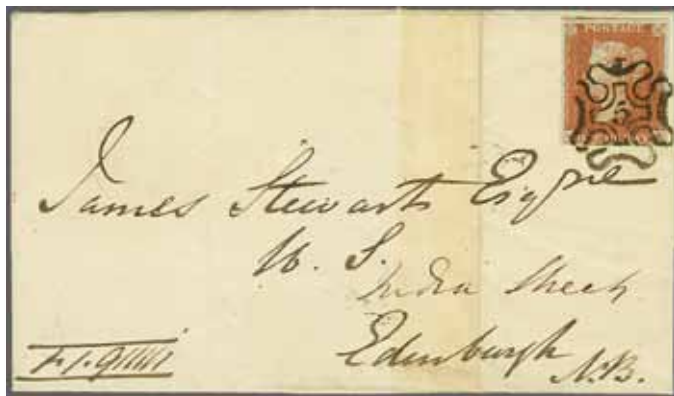 POSTAGE
5
James Stewart Esqre
W. S.
India Street
Edinburgh
N.B.